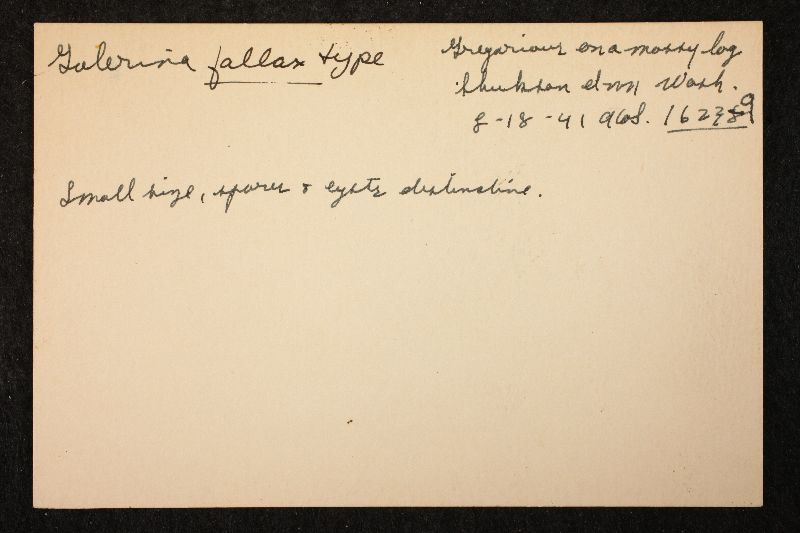 Galerina fallax type
Gregarious on a mossy log
Shuksan Inn Wash.
8-18-41 AHS. 16239
Small size, spores & cysts distinctive.